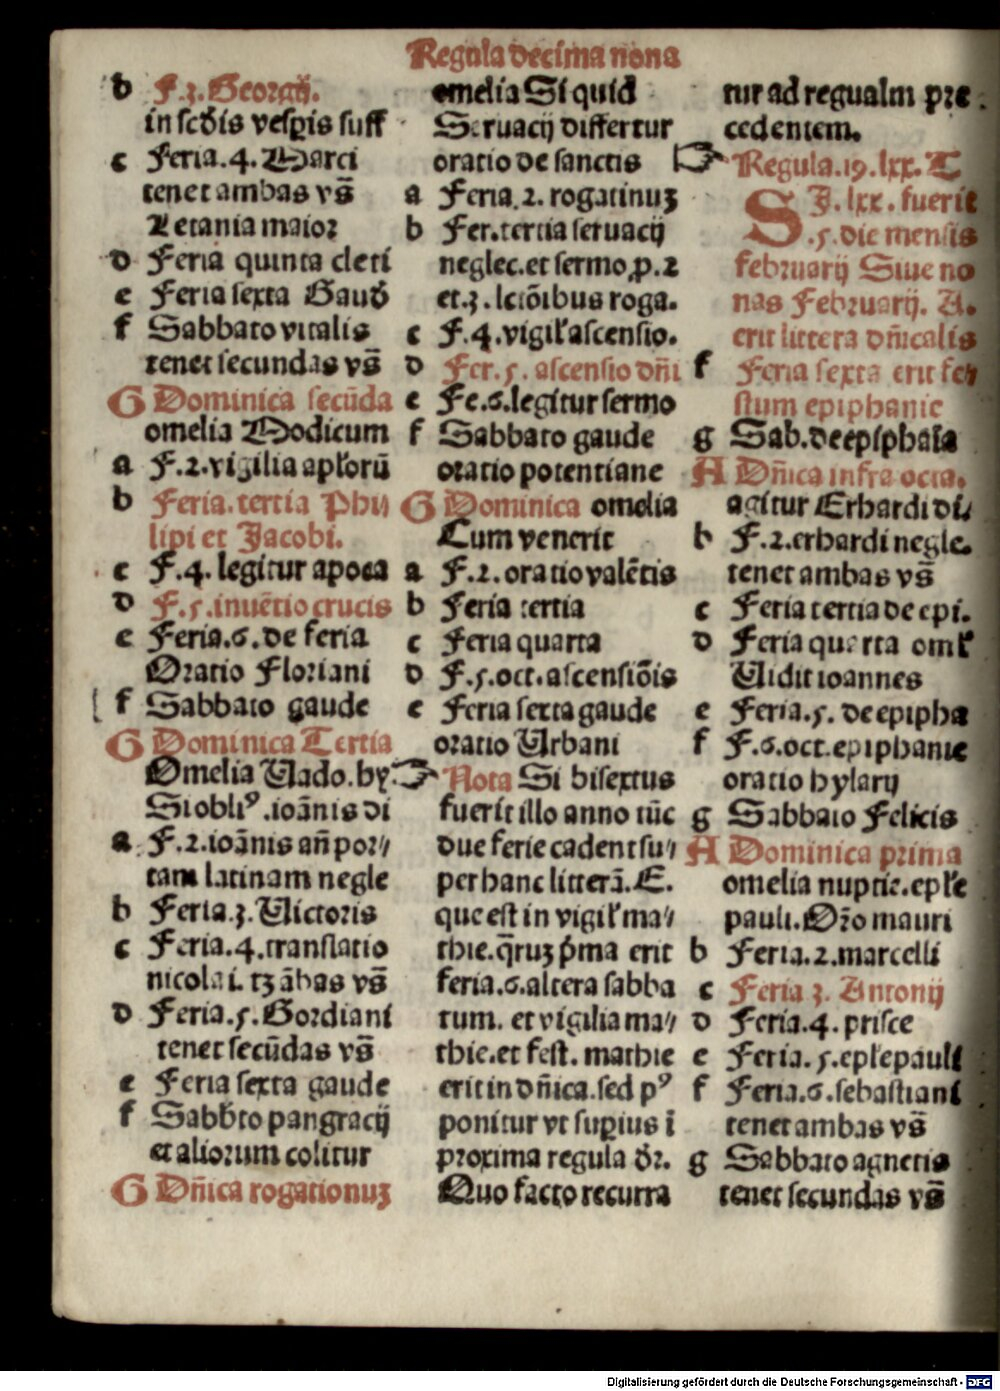 Regula decima nona
b F.3. Georgij.
in scd̄is vesꝑis suff
c Feria.4. Marci
tenet ambas vs̄
Letania maior
d Feria quinta cleti
e Feria sexta Gaud̄
f Sabbato vitalis
tenet secundas vs̄
G Dominica secūda
omelia Modicum
a F.2.vigilia apl̄orū
b Feria.tertia Phi⸗
lipi et Jacobi.
c F.4. legitur apoca
d F.5.inuētio crucis
e Feria.6. de feria
Oratio Floriani
f Sabbato gaude
G Dominica Tertia
Omelia Uado. hy.
Si obliꝰ .ioānis di
a F.2.ioānis an̄ por⸗
tam latinam negle
b Feria.3. Uictoris
c Feria.4. translatio
nicolai. tꝫ ābas vs̄
d Feria.5. Gordiani
tenet secūdas vs̄
e Feria sexta gaude
f Sabb̄to pangracij
et aliorum colitur
G Dn̄ica rogationuꝫ
omelia Si quid
Seruacij differtur
oratio de sanctis
a Feria.2. rogatinuꝫ
b Fer.tertia seruacij
neglec.et sermo ꝓ.2
et.3. lctōibus roga.
c F.4.vigil̄ ascensio.
d Fer.5. ascensio dn̄i
e Fe.6.legitur sermo
f Sabbato gaude
oratio potentiane
G Dominica omelia
Cum venerit
a F.2. oratio valētis
b Feria tertia
c Feria quarta
d F.5.oct.ascensiōis
e Feria sexta gaude
oratio Urbani
☞ Nota Si bisextus
fuerit illo anno tūc
due ferie cadent su⸗
per hanc litterā. E.
que est in vigil̄ ma⸗
thie.q̄ruꝫ p̄ma erit
feria.6.altera sabba
tum. et vigilia ma⸗
thie.et fest. mathie
erit in dn̄ica.sed pꝰ
ponitur vt suꝑius ī
proxima regula d̄r.
Quo facto recurra
tur ad regualm pre
cedentem.
☞ Regula.19.lxx. T
SJ.lxx.fuerit
.5.die mensis
februarij Siue no
nas Februarij. A.
erit littera dn̄icalis
f Feria sexta erit fe⸗
stum epiphanie
g Sab.de epiphaīa
A Dn̄ica infra octa.
agitur Erhardi di⸗
b F.2.erhardi negle.
tenet ambas vs̄
c Feria tertia de epi.
d Feria quarta oml̄
Uidit ioannes
e Feria.5. de epipha
f F.6.oct.epiphanie
oratio hylarij
g Sabbato Felicis
A Dominica prima
omelia nuptie.epl̄e
pauli.Or̄o mauri
b Feria.2.marcelli
c Feria 3. Antonij
d Feria.4. prisce
e Feria.5.epl̄e pauli
f Feria.6.sebastiani
tenet ambas vs̄
g Sabbato agnetis
tenet secundas vs̄
Digitalisierung gefördert durch die Deutsche Forschungsgemeinschaft - DFG